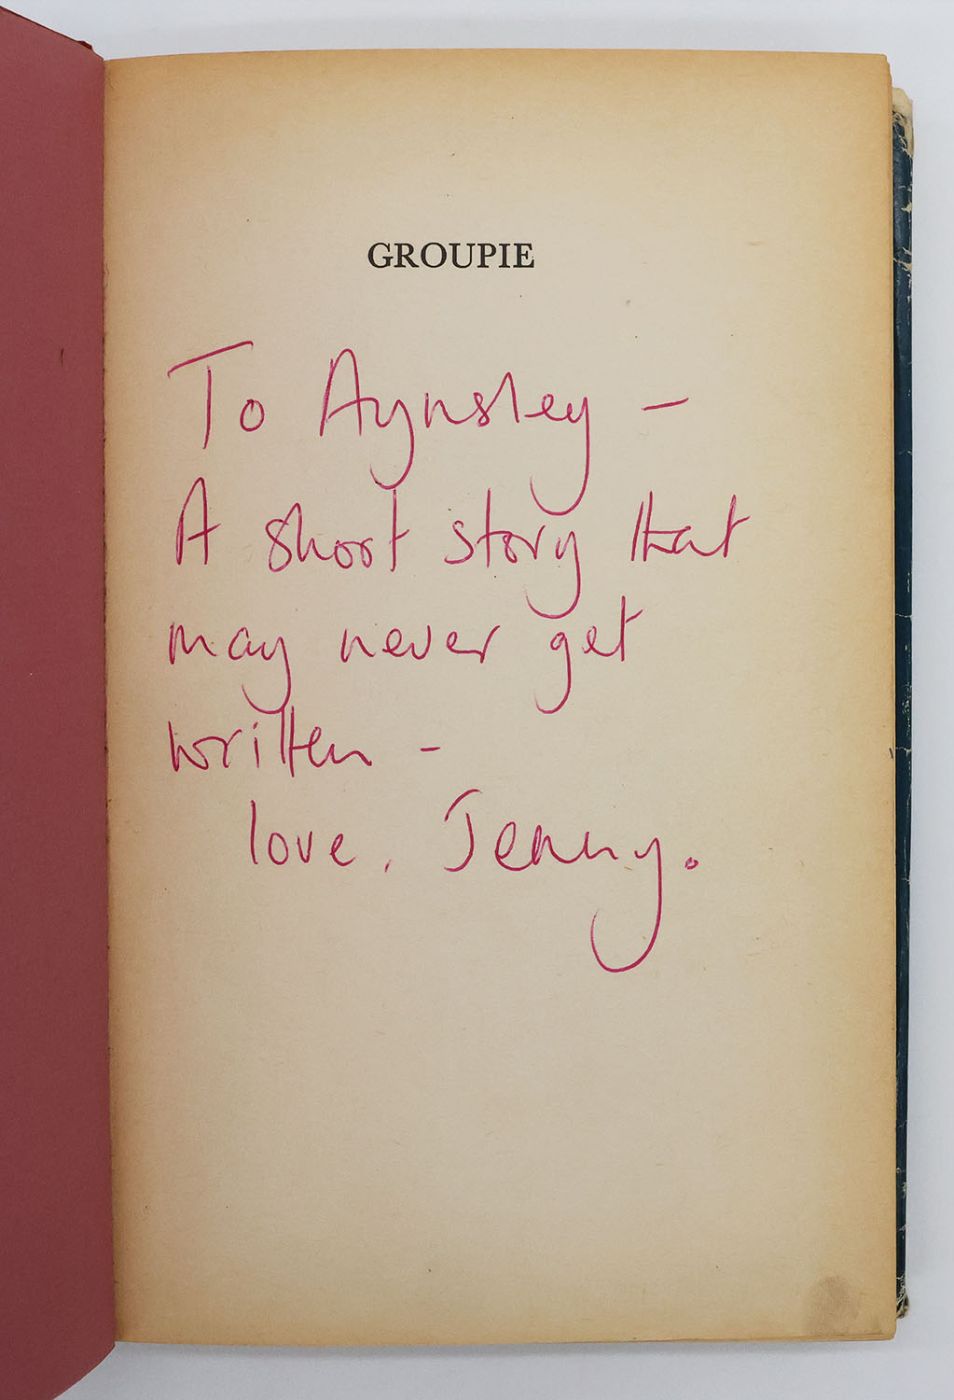 GROUPIE
To Aynsley –
A short story that
may never get
written –
love, Jenny.